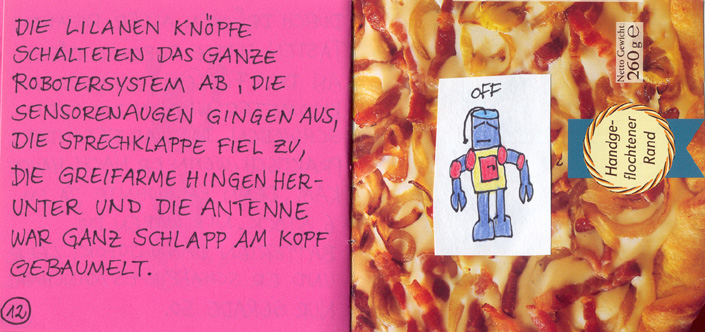 DIE LILANEN KNÖPFE
SCHALTETEN DAS GANZE
ROBOTERSYSTEM AB, DIE
SENSORENAUGEN GINGEN AUS,
DIE SPRECHKLAPPE FIEL ZU,
DIE GREIFARME HINGEN HER-
UNTER UND DIE ANTENNE
WAR GANZ SCHLAPP AM KOPF
GEBAUMELT.
12
OFF
Netto Gewicht
260 g e
Handge-
flochtener
Rand